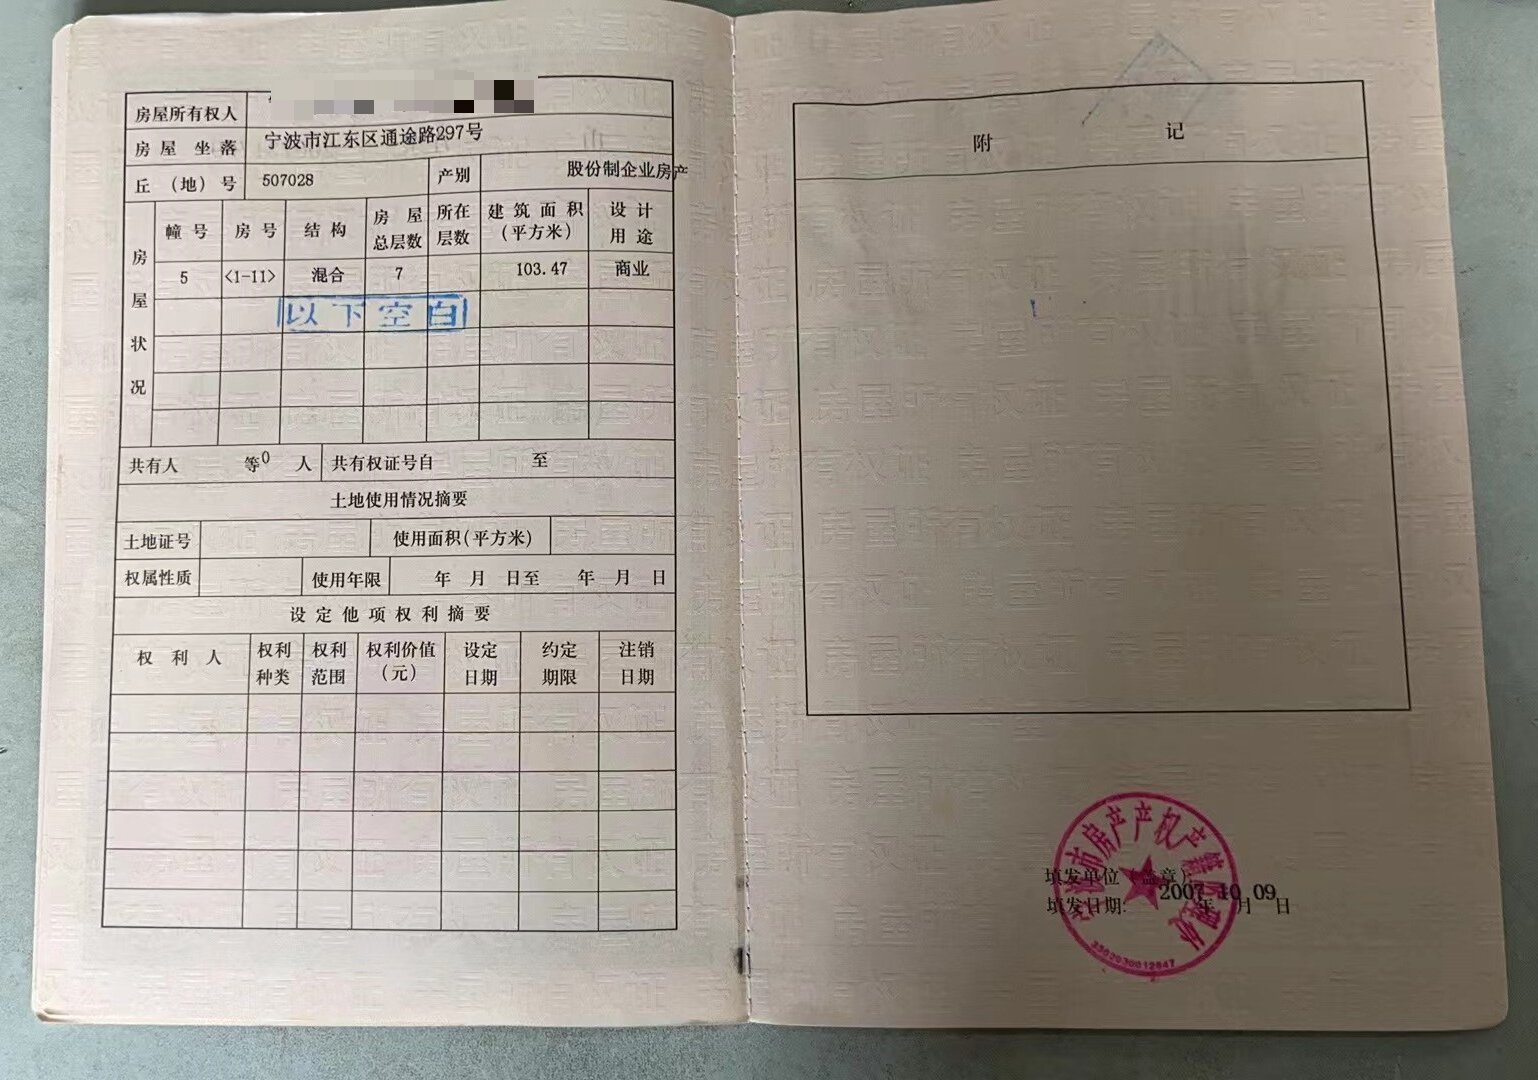 房屋所有权人
房屋坐落 宁波市江东区通途路297号
丘（地）号 507028 产别 股份制企业房产
房屋状况
幢号 房号 结构 房屋总层数 所在层数 建筑面积（平方米） 设计用途
5 <1-11> 混合 7 103.47 商业
以下空白
共有人 等0人 共有权证号自 至
土地使用情况摘要
土地证号 使用面积(平方米)
权属性质 使用年限 年 月 日至 年 月 日
设定他项权利摘要
权利人 权利种类 权利范围 权利价值（元） 设定日期 约定期限 注销日期
附 记
宁波市房产产权产籍管理处
填发单位（盖章）:
填发日期: 2007年10月09日